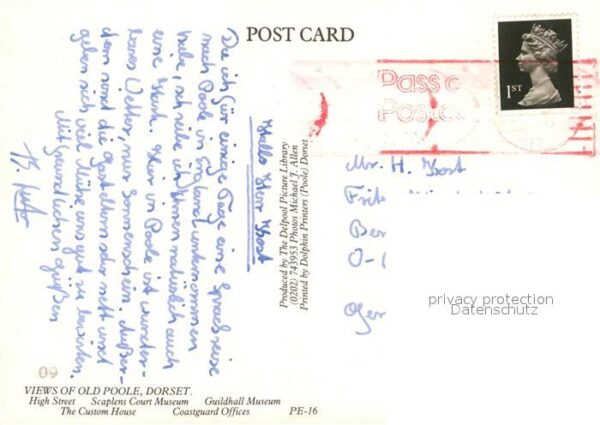 POST CARD
1ST
Pass o
Postco
Hallo Herr Host
Da ich für einige Tage eine Sprachreise
nach Poole in England unternommen
habe, schreibe ich Ihnen natürlich auch
eine Karte. Hier in Poole ist wunder-
bares Wetter, nur Sonnenschein. Außer-
dem sind die Gasteltern sehr nett und
geben sich viel Mühe uns gut zu bewirten.
Mit freundlichen Grüßen
Produced by The Delpool Picture Library
(0202) 743953 Photos Michael J. Allen
Printed by Dolphin Printers (Poole) Dorset
Mr. H. Host
Frit
Ber
D-1
Ger
privacy protection
Datenschutz
09
VIEWS OF OLD POOLE, DORSET.
High Street Scaplens Court Museum Guildhall Museum
The Custom House Coastguard Offices PE-16